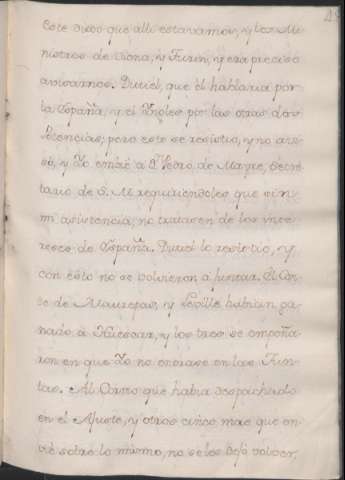 48
Este dixo que alli estavamos, y los Mi-
nistros de Viena, y Turin, y era preciso
avisarnos. Dutiel, que el hablaria por
la España, y el Ingles por las otras dos
Potencias; pero este se resistio, y no avi-
sò, y Yo embiè a Dn. Pedro de Mayre, Secre-
tario de S. M. requiriendoles que sin
mi asistencia, no tratasen de los inte-
reses de España. Dutiel lo resistio, y
con esto no se volvieron a juntar. El Con-
de de Maurepas, y Seville habian ga-
nado à Huescar, y los tres se empeña-
ron en que Yo no entrase en las Jun-
tas. Al Correo que habia despachado
en el Ajuste, y otros cinco mas que em-
biè sobre lo mismo, no se les dejò volver.